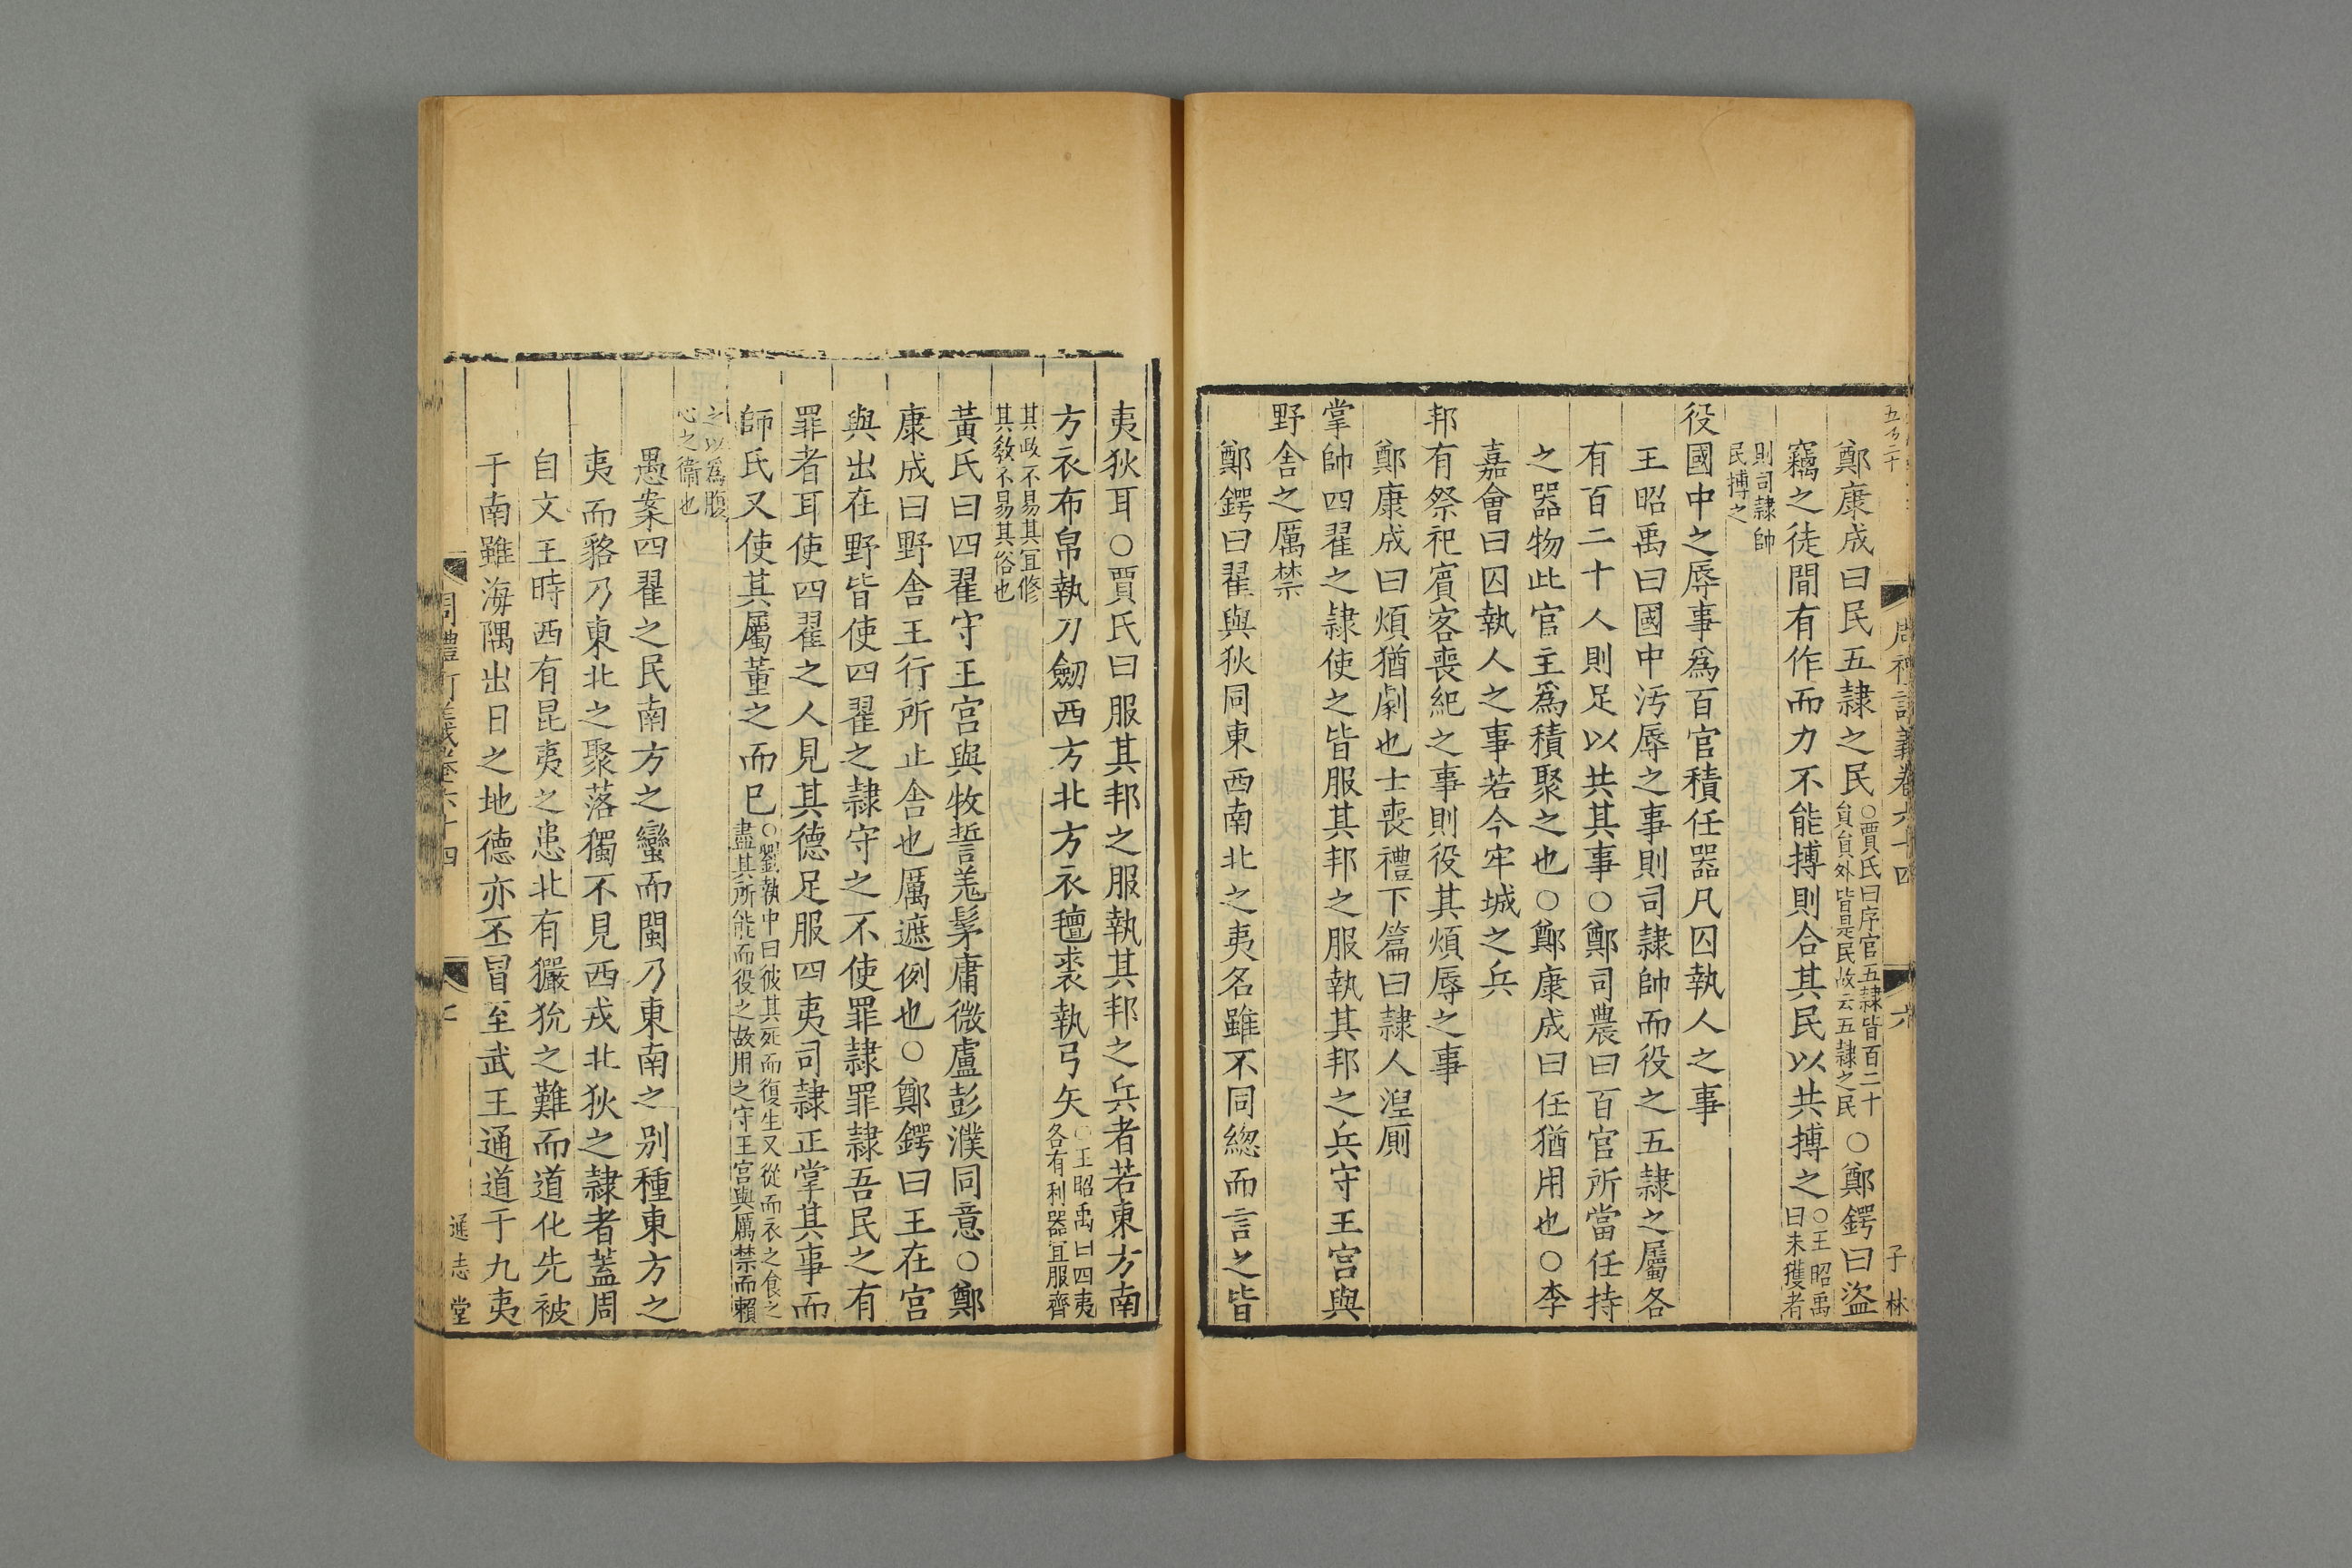 周禮訂義卷六十四 六 子林
鄭康成曰民五隷之民○賈氏曰序官五隷皆百二十員員外皆是民故云五隷之民○鄭鍔曰盗
竊之徒閒有作而力不能搏則合其民以共搏之○王昭禹曰未獲者
則司隷帥民搏之
役國中之辱事爲百官積任器凡囚執人之事
王昭禹曰國中汚辱之事則司隷帥而役之五隷之屬各
有百二十人則足以共其事○鄭司農曰百官所當任持
之器物此官主爲積聚之也○鄭康成曰任猶用也○李
嘉會曰囚執人之事若今牢城之兵
邦有祭祀賔客喪紀之事則役其煩辱之事
鄭康成曰煩猶劇也士喪禮下篇曰隷人涅厠
掌帥四翟之隷使之皆服其邦之服執其邦之兵守王宫與
野舍之厲禁
鄭鍔曰翟與狄同東西南北之夷名雖不同緫而言之皆
夷狄耳○賈氏曰服其邦之服執其邦之兵者若東方南
方衣布帛執刀劒西方北方衣氊裘執弓矢○王昭禹曰四夷各有利器冝服齊
其政不易其冝修其教不易其俗也
黃氏曰四翟守王宫與牧誓羗髳庸微盧彭濮同意○鄭
康成曰野舍王行所止舍也厲遮例也○鄭鍔曰王在宫
與出在野皆使四翟之隷守之不使罪隷罪隷吾民之有
罪者耳使四翟之人見其德足服四夷司隷正掌其事而
師氏又使其屬董之而已○劉執中曰彼其死而復生又從而衣之食之盡其所能而役之故用之守王宫與厲禁而賴
之以爲腹心之衞也
愚案四翟之民南方之蠻而閩乃東南之别種東方之
夷而貉乃東北之聚落獨不見西戎北狄之隷者蓋周
自文王時西有昆夷之患北有玁狁之難而道化先被
于南雖海隅出日之地德亦丕冒至武王通道于九夷
周禮訂義卷六十四 七 通志堂